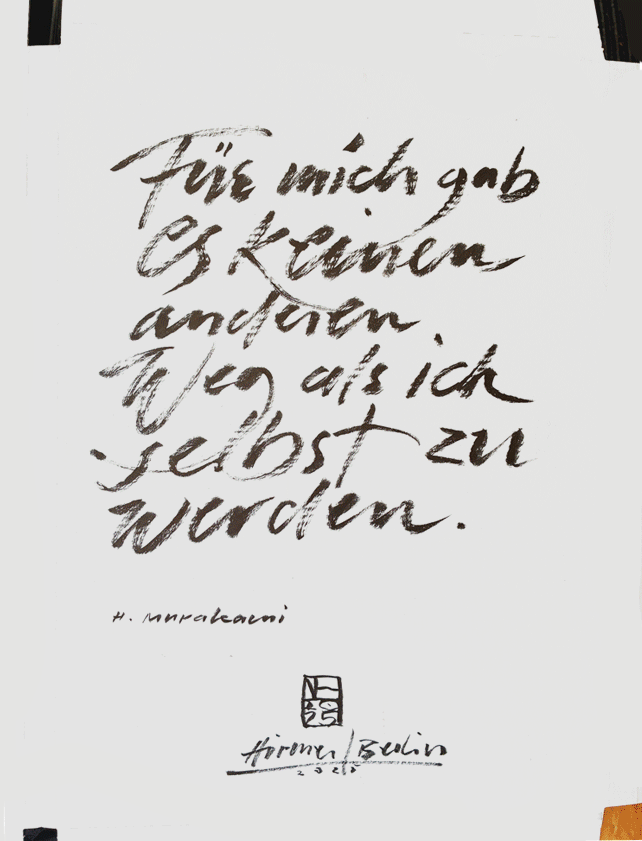 Für mich gab
es keinen
anderen
Weg als ich
selbst zu
werden.
H. Murakami
NH
2025
Hirmer/Berlin
2025